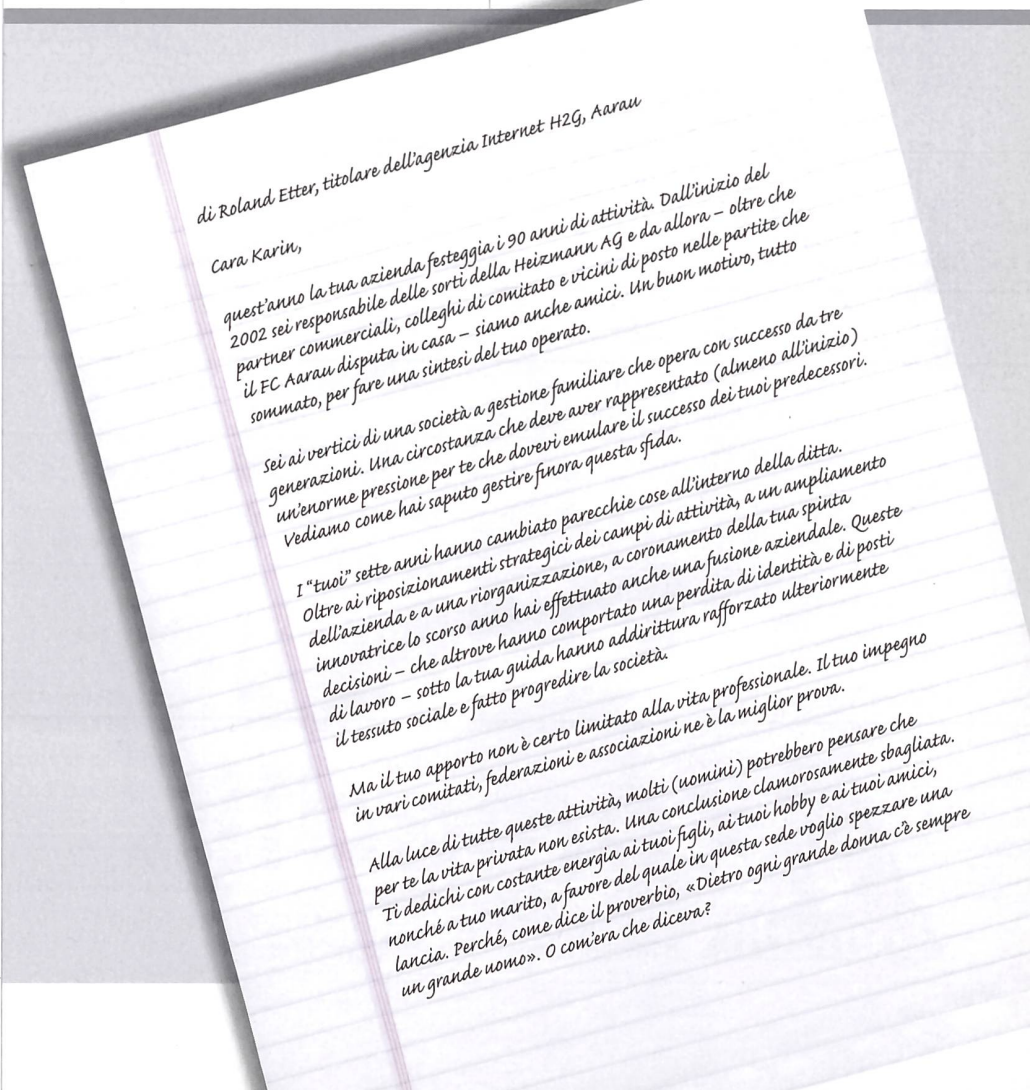 di Roland Etter, titolare dell'agenzia Internet H2G, Aarau
Cara Karin,
quest'anno la tua azienda festeggia i 90 anni di attività. Dall'inizio del
2002 sei responsabile delle sorti della Heizmann AG e da allora – oltre che
partner commerciali, colleghi di comitato e vicini di posto nelle partite che
il FC Aarau disputa in casa – siamo anche amici. Un buon motivo, tutto
sommato, per fare una sintesi del tuo operato.
Sei ai vertici di una società a gestione familiare che opera con successo da tre
generazioni. Una circostanza che deve aver rappresentato (almeno all'inizio)
un'enorme pressione per te che dovevi emulare il successo dei tuoi predecessori.
Vediamo come hai saputo gestire finora questa sfida.
I "tuoi" sette anni hanno cambiato parecchie cose all'interno della ditta.
Oltre ai riposizionamenti strategici dei campi di attività, a un ampliamento
dell'azienda e a una riorganizzazione, a coronamento della tua spinta
innovatrice lo scorso anno hai effettuato anche una fusione aziendale. Queste
decisioni – che altrove hanno comportato una perdita di identità e di posti
di lavoro – sotto la tua guida hanno addirittura rafforzato ulteriormente
il tessuto sociale e fatto progredire la società.
Ma il tuo apporto non è certo limitato alla vita professionale. Il tuo impegno
in vari comitati, federazioni e associazioni ne è la miglior prova.
Alla luce di tutte queste attività, molti (uomini) potrebbero pensare che
per te la vita privata non esista. Una conclusione clamorosamente sbagliata.
Ti dedichi con costante energia ai tuoi figli, ai tuoi hobby e ai tuoi amici,
nonché a tuo marito, a favore del quale in questa sede voglio spezzare una
lancia. Perché, come dice il proverbio, «Dietro ogni grande donna c'è sempre
un grande uomo». O com'era che diceva?